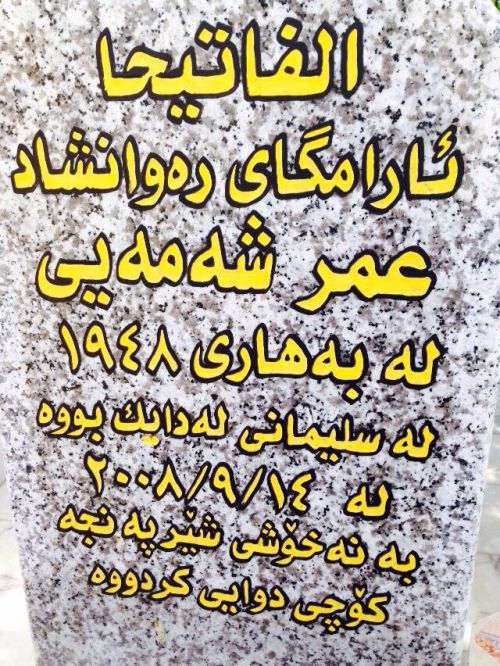 الفاتیحا
ئارامگای رەوانشاد
عمر شەمەیی
لە بەهاری ١٩٤٨
لە سلیمانی لەدایك بووە
لە ٢٠٠٨/٩/١٤
بە نەخۆشی شێرپەنجە
كۆچی دوایی كردووە